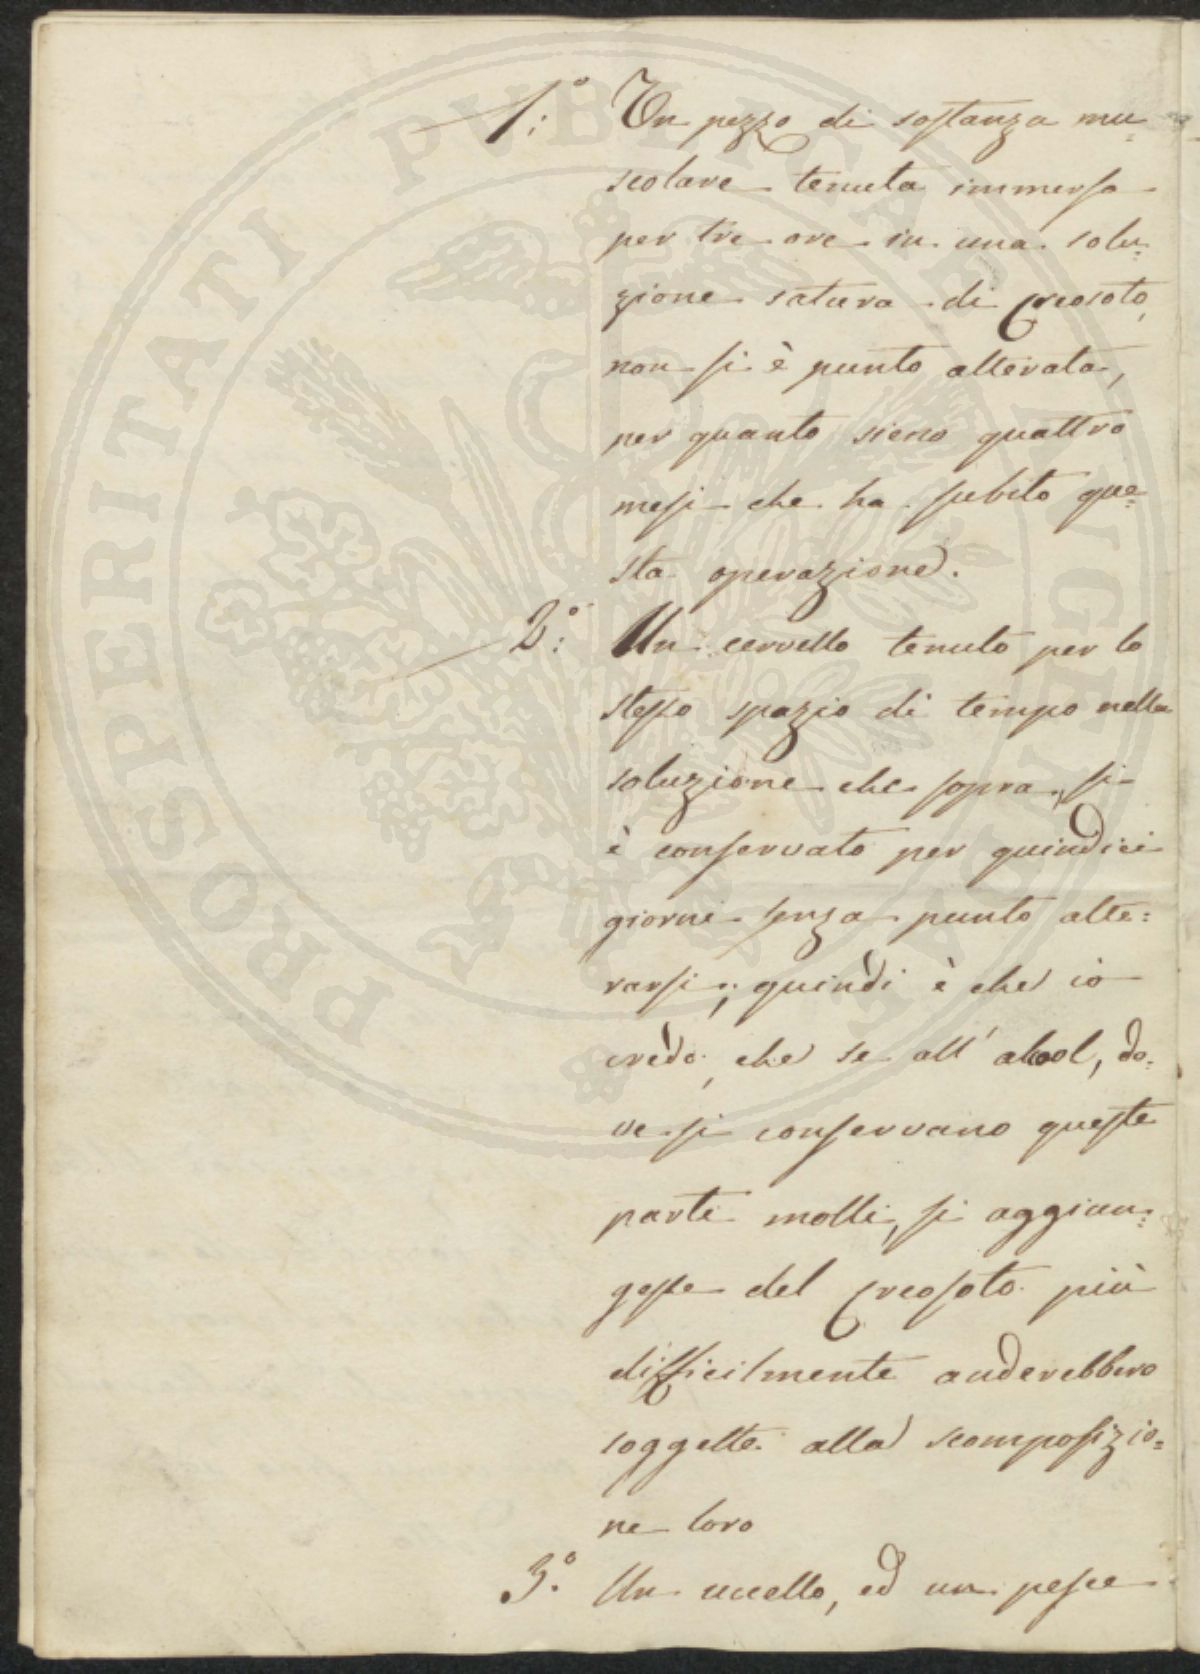 1.° Un pezzo di sostanza mu-
scolare tenuta immersa
per tre ore in una solu-
zione satura di Creosoto,
non si è punto alterata,
per quanto sieno quattro
mesi che ha subito que=
sta operazione.
2.° Un cervello tenuto per lo
stesso spazio di tempo nella
soluzione che sopra, si
è conservato per quindici
giorni senza punto alte=
rarsi; quindi è che io
credo, che se all' alcool, do=
ve si conservano queste
parti molli, si aggiun=
gesse del Creosoto più
difficilmente anderebbero
soggette alla scomposizio=
ne loro
3.° Un uccello, ed un pesce
PROSPERITATI PVBLICAE AVGENDAE